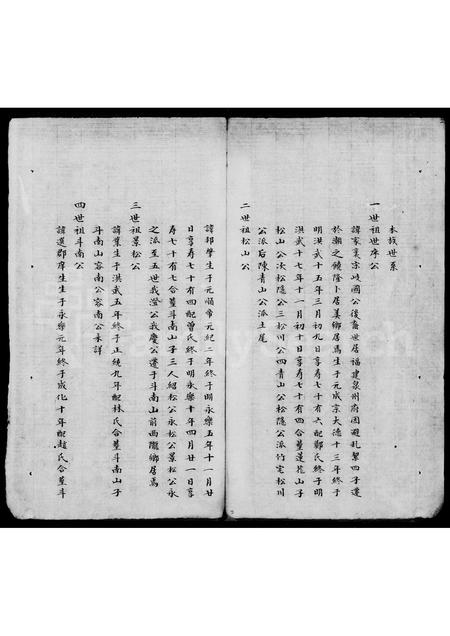 本族世系
一世祖世序公
諱家裏宗岐國公後裔世居福建泉州府因避乱挈四子遷
於潮之饒隆卜居美鄉居焉生于元成宗大德十三年終于
明洪武十五年三月初九日享寿七十有六配鄭氏終于明
洪武十七年十一月初十日享寿七十有四合塟蓮花山子
松山公次松隱公三松川公四青山公松隱公派竹宅松川
公派后陳青山公派土尾
二世祖松山公
諱邦學生于元順帝元紀二年終于明永樂五年十一月廿
日享寿七十有四配曾氏終于明永樂十年四月廿一日享
寿七十有七合塟斗南山子三人紹松公永松公景松公永
之派至五世我澄公我慶公遷于斗南山前西隴鄉居焉
三世祖景松公
諱業生于洪武五年終于正統九年配林氏合塟斗南山子
斗南山容南公容南公未詳
四世祖斗南公
諱選郡庠生生于永樂元年終于成化十年配趙氏合塟斗